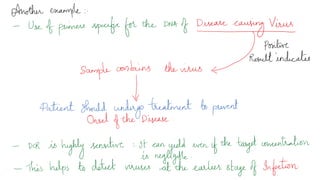 Another example :-
- Use of primers specific for the DNA of Disease causing Virus
Positive
Result indicates
Sample contains the virus
Patient should undergo treatment to prevent
Onset of the Disease
- PCR is highly sensitive : It can yield even if the target concentration
is negligible
- This helps to detect viruses at the earlier stage of Infection